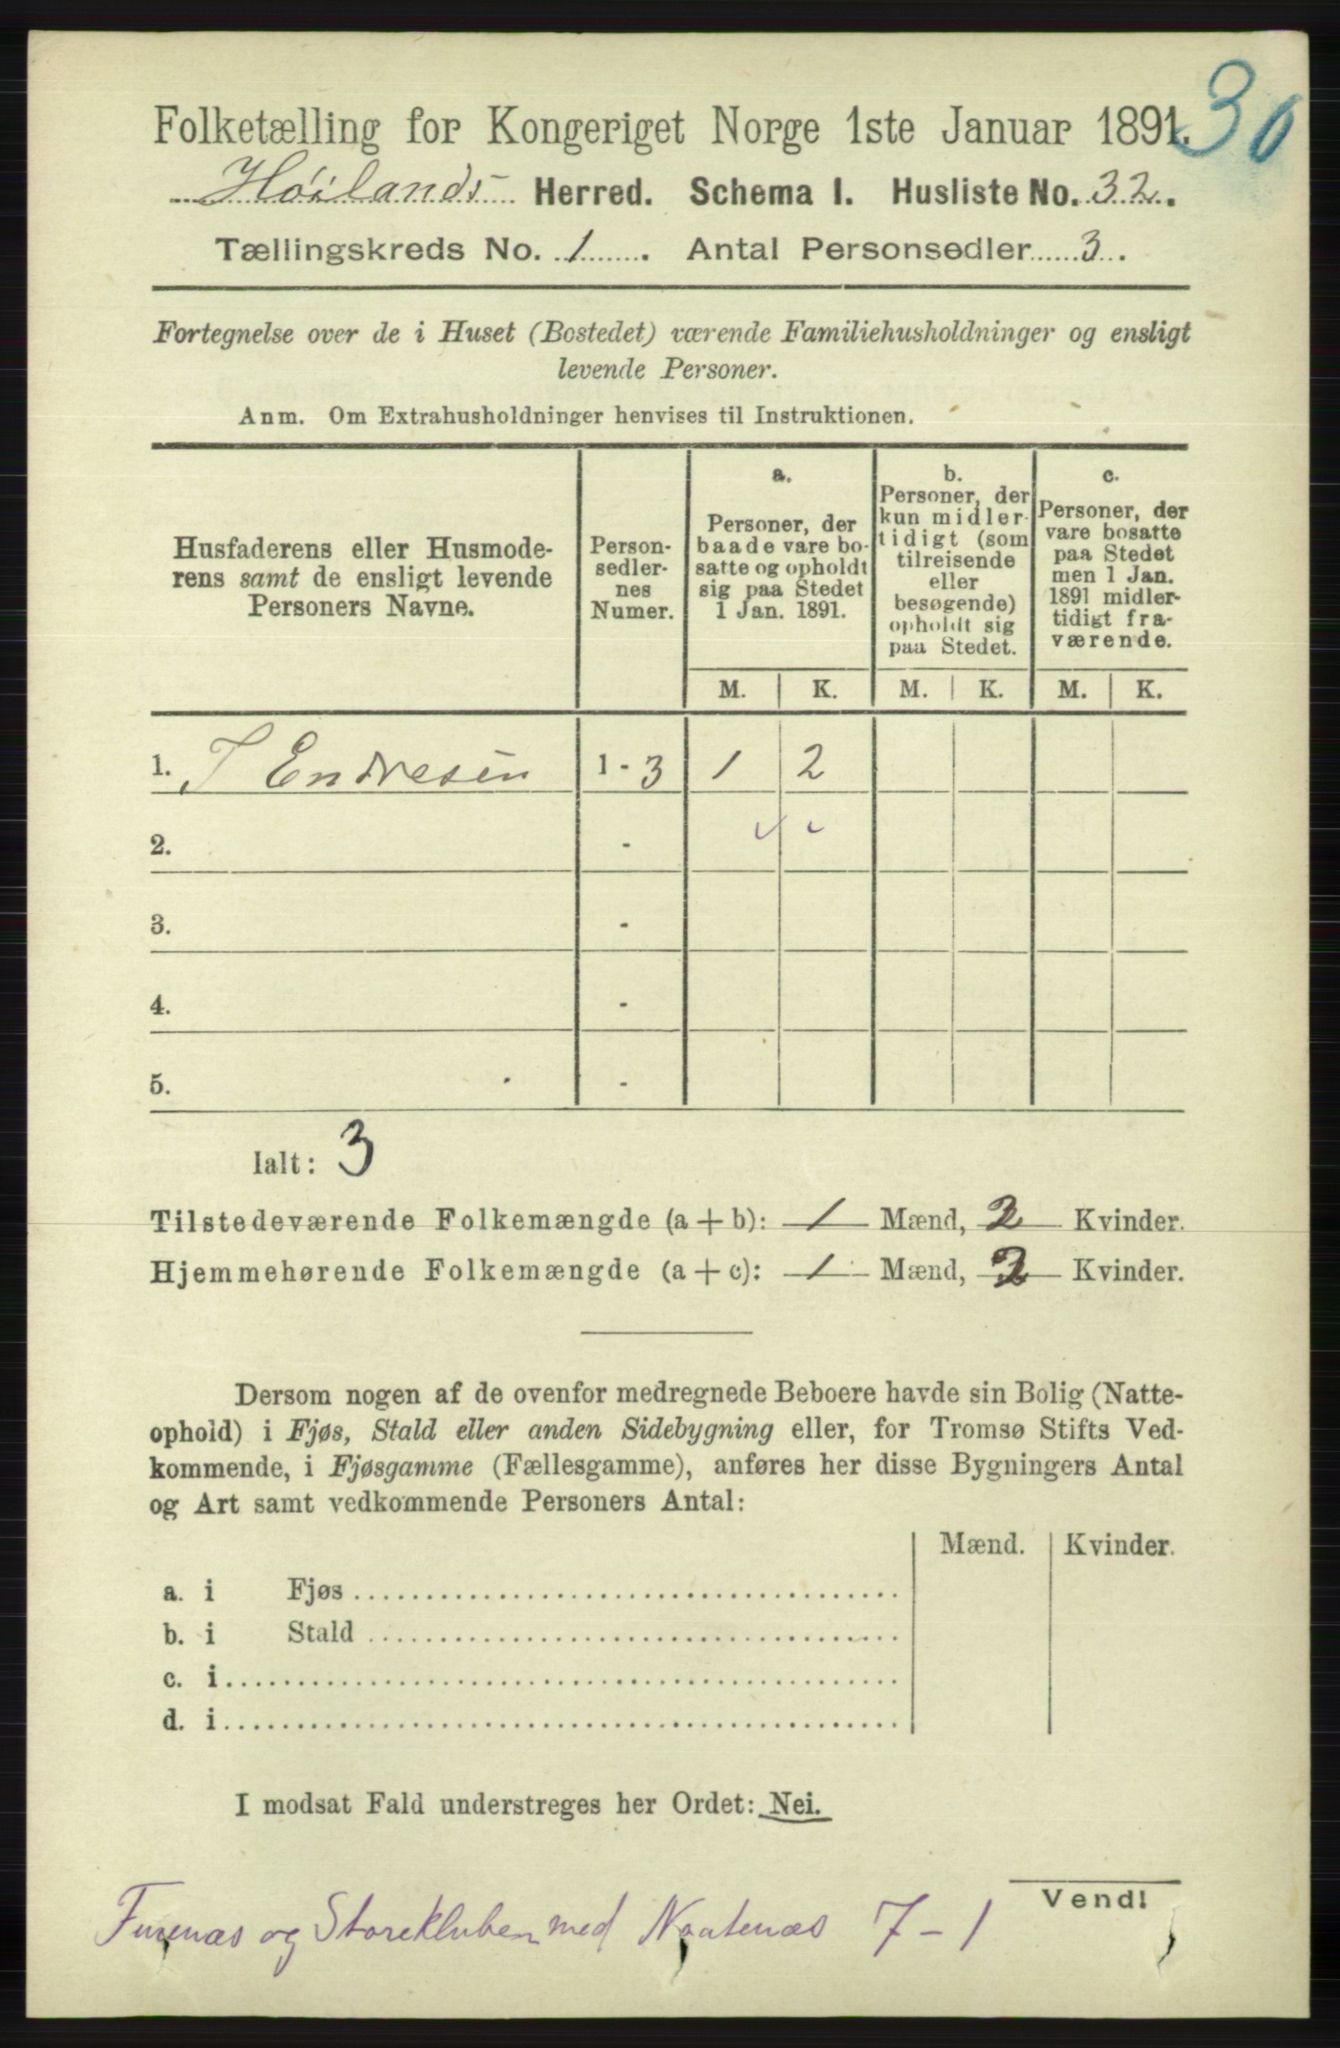 30
Folketælling for Kongeriget Norge 1ste Januar 1891.
Höilands Herred. Schema I. Husliste No. 32.
Tællingskreds No. 1. Antal Personsedler 3.
Fortegnelse over de i Huset (Bostedet) værende Familiehusholdninger og ensligt
levende Personer.
Anm. Om Extrahusholdninger henvises til Instruktionen.
Husfaderens eller Husmode-
rens samt de ensligt levende
Personers Navne.
Person-
sedler-
nes
Numer.
a.
Personer, der
baade vare bo-
satte og opholdt
sig paa Stedet
1 Jan. 1891.
b.
Personer, der
kun midler-
tidigt (som
tilreisende
eller
besøgende)
opholdt sig
paa Stedet.
c.
Personer, der
vare bosatte
paa Stedet
men 1 Jan.
1891 midler-
tidigt fra-
værende.
M. K. M. K. M. K.
1. T Endresen 1 - 3 1 2
2. -
3. -
4. -
5. -
Ialt: 3
Tilstedeværende Folkemængde (a + b): 1 Mænd, 2 Kvinder.
Hjemmehørende Folkemængde (a + c): 1 Mænd, 2 Kvinder.
Dersom nogen af de ovenfor medregnede Beboere havde sin Bolig (Natte-
ophold) i Fjøs, Stald eller anden Sidebygning eller, for Tromsø Stifts Ved-
kommende, i Fjøsgamme (Fællesgamme), anføres her disse Bygningers Antal
og Art samt vedkommende Personers Antal:
Mænd. Kvinder.
a. i Fjøs
b. i Stald
c. i
d. i
I modsat Fald understreges her Ordet: Nei.
Vend!
Furenæs og Storekluben med Naatenæs 7-1